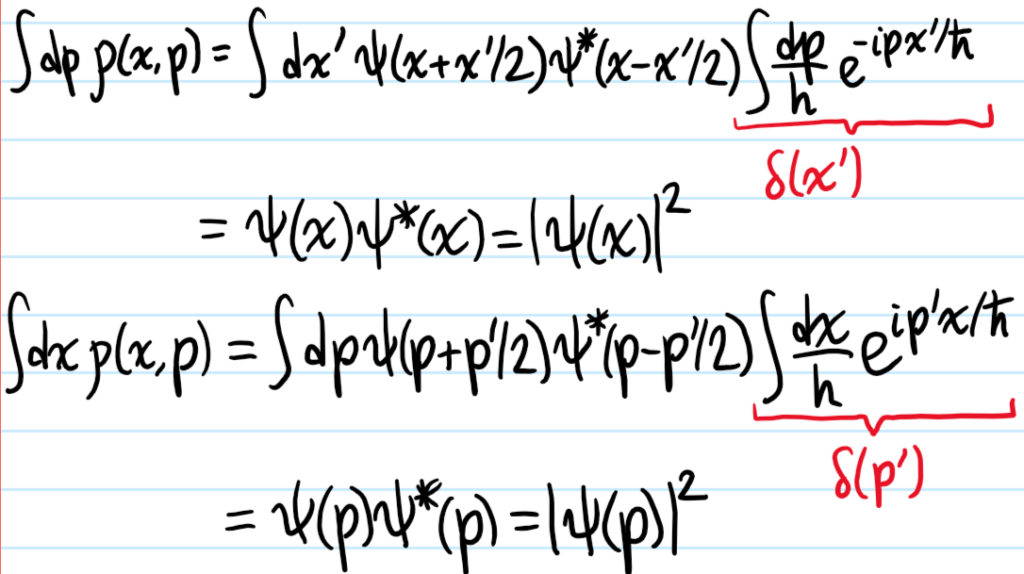 ∫dp ρ(x,p) = ∫ dx' ψ(x+x'/2)ψ*(x-x'/2) ∫ dp/h e^{-ipx'/ħ}
δ(x')
= ψ(x)ψ*(x) = |ψ(x)|²
∫dx ρ(x,p) = ∫ dp ψ(p+p'/2)ψ*(p-p'/2) ∫ dx/h e^{ip'x/ħ}
δ(p')
= ψ(p)ψ*(p) = |ψ(p)|²